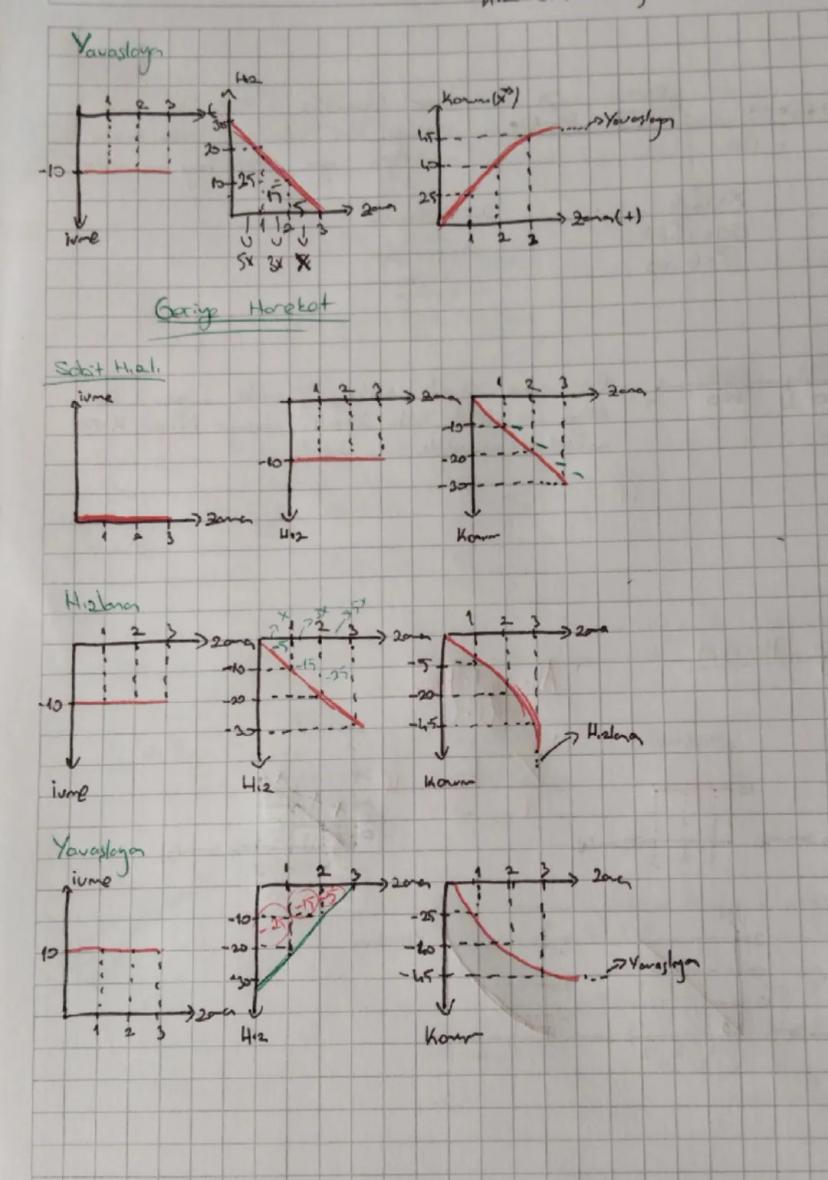 Yavaşlayan
Hız
1 2 3 t
30
20
10
-10
25 15 5
1 2 3 Zaman
5x 3x x
ivme
Konum(x)
45
40
25
1 2 3
Zaman(+)
Yavaşlayan
Geriye Hareket
Sabit Hızlı
ivme
1 2 3 Zaman
1 2 3 Zaman
-10
Hız
1 2 3 Zaman
-10
-20
-30
Konum
Hızlanan
1 2 3 Zaman
-10
ivme
x 3x 5x
1 2 3 Zaman
-5 -15 -25
-10
-20
-30
Hız
1 2 3 Zaman
-5
-20
-45
Hızlanan
Konum
Yavaşlayan
ivme
10
1 2 3 Zaman
1 2 3 Zaman
-25 -15 -5
-10
-20
-30
Hız
1 2 3 Zaman
-25
-40
-45
Yavaşlayan
Konum